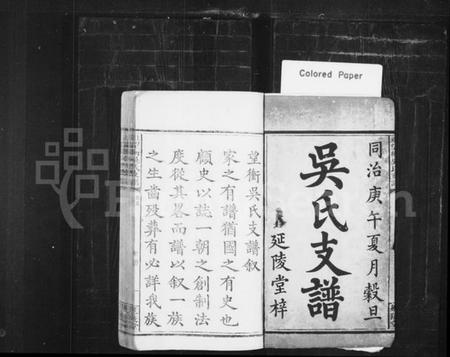 Colored Paper
同治庚午夏月榖旦
吳氏支譜
延陵堂梓
望衡吳氏支譜叙
家之有譜猶國之有史也
顧史以誌一朝之創制法
度從其畧而譜以叙一族
之生齒殁葬有必詳我族